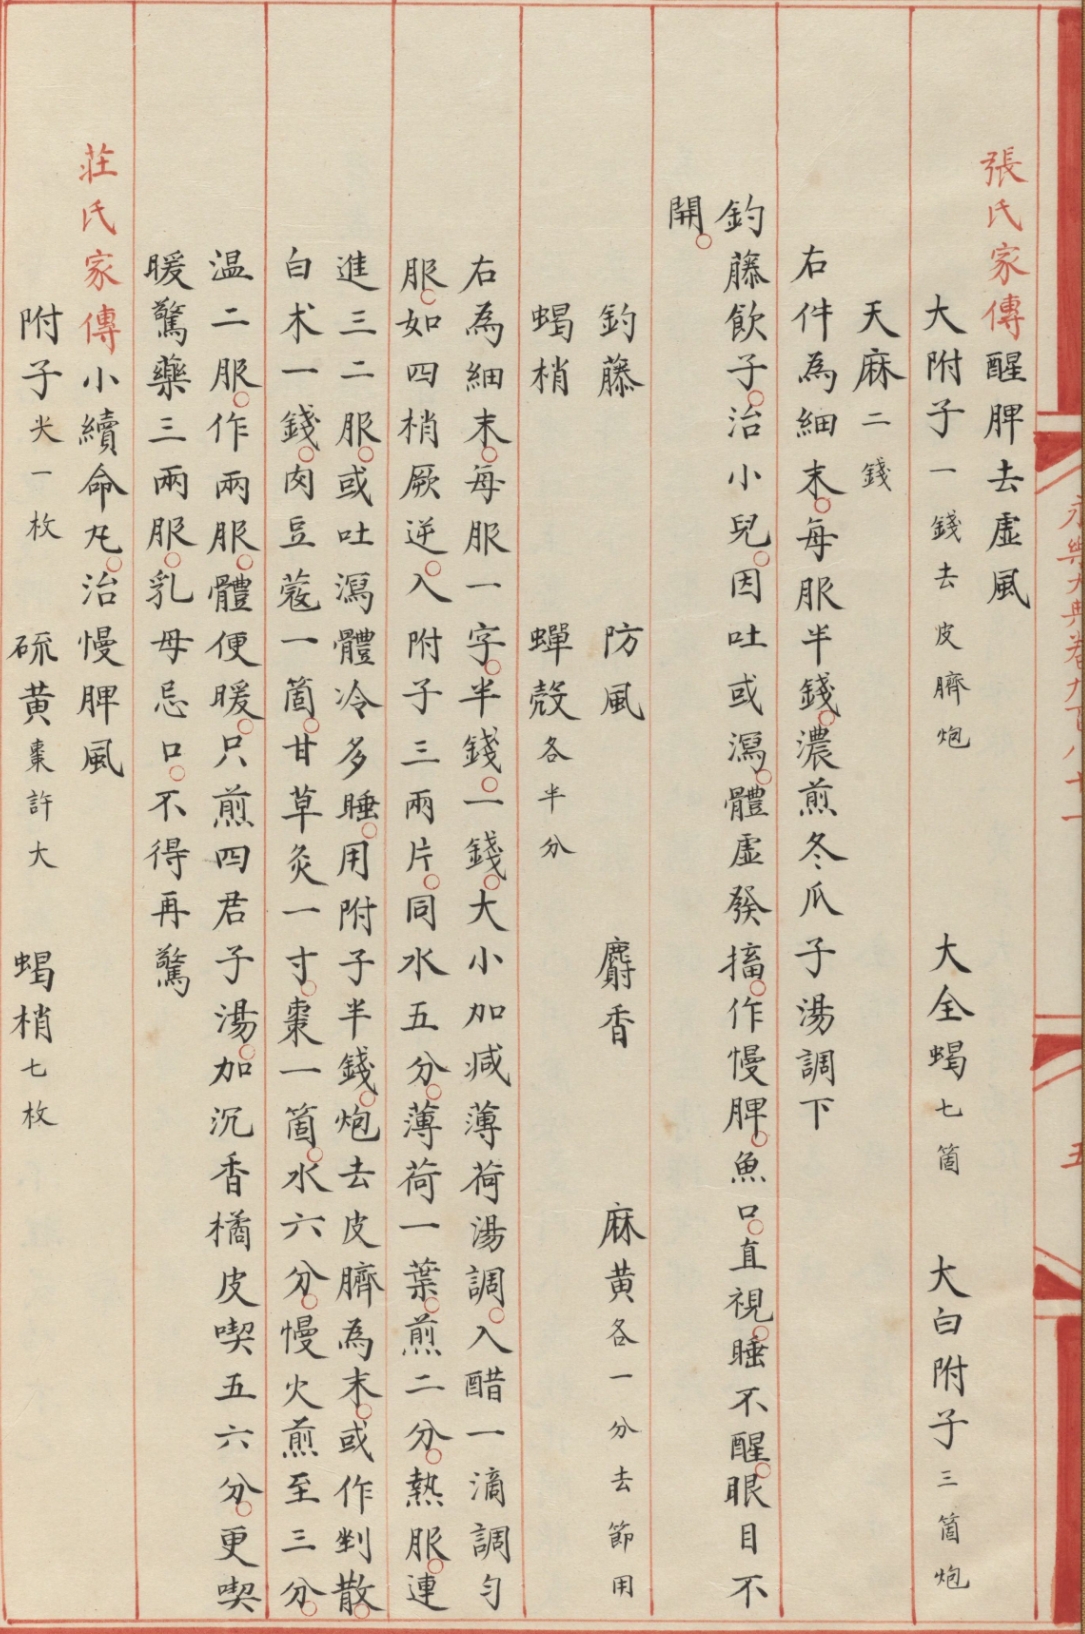 張氏家傳醒脾去虛風
大附子一錢去皮臍炮 大全蝎七箇 大白附子三箇炮
天麻二錢
右件為細末每服半錢濃煎冬瓜子湯調下
釣藤飲子治小兒因吐或瀉體虛發搐作慢脾魚口直視睡不醒眼目不
開
釣藤 防風 麝香 麻黃各一分去節用
蝎梢 蟬殼各半分
右為細末每服一字半錢一錢大小加減薄荷湯調入醋一滴調勻
服如四梢厥逆入附子三兩片同水五分薄荷一葉煎二分熱服連
進三二服或吐瀉體冷多睡用附子半錢炮去皮臍為末或作剉散
白朮一錢肉豆蔻一箇甘草炙一寸棗一箇水六分慢火煎至三分
温二服作兩服體便暖只煎四君子湯加沉香橘皮喫五六分更喫
暖驚藥三兩服乳母忌口不得再驚
莊氏家傳小續命丸治慢脾風
附子尖一枚 硫黃棗許大 蝎梢七枚
永樂大典卷九百八十一
五